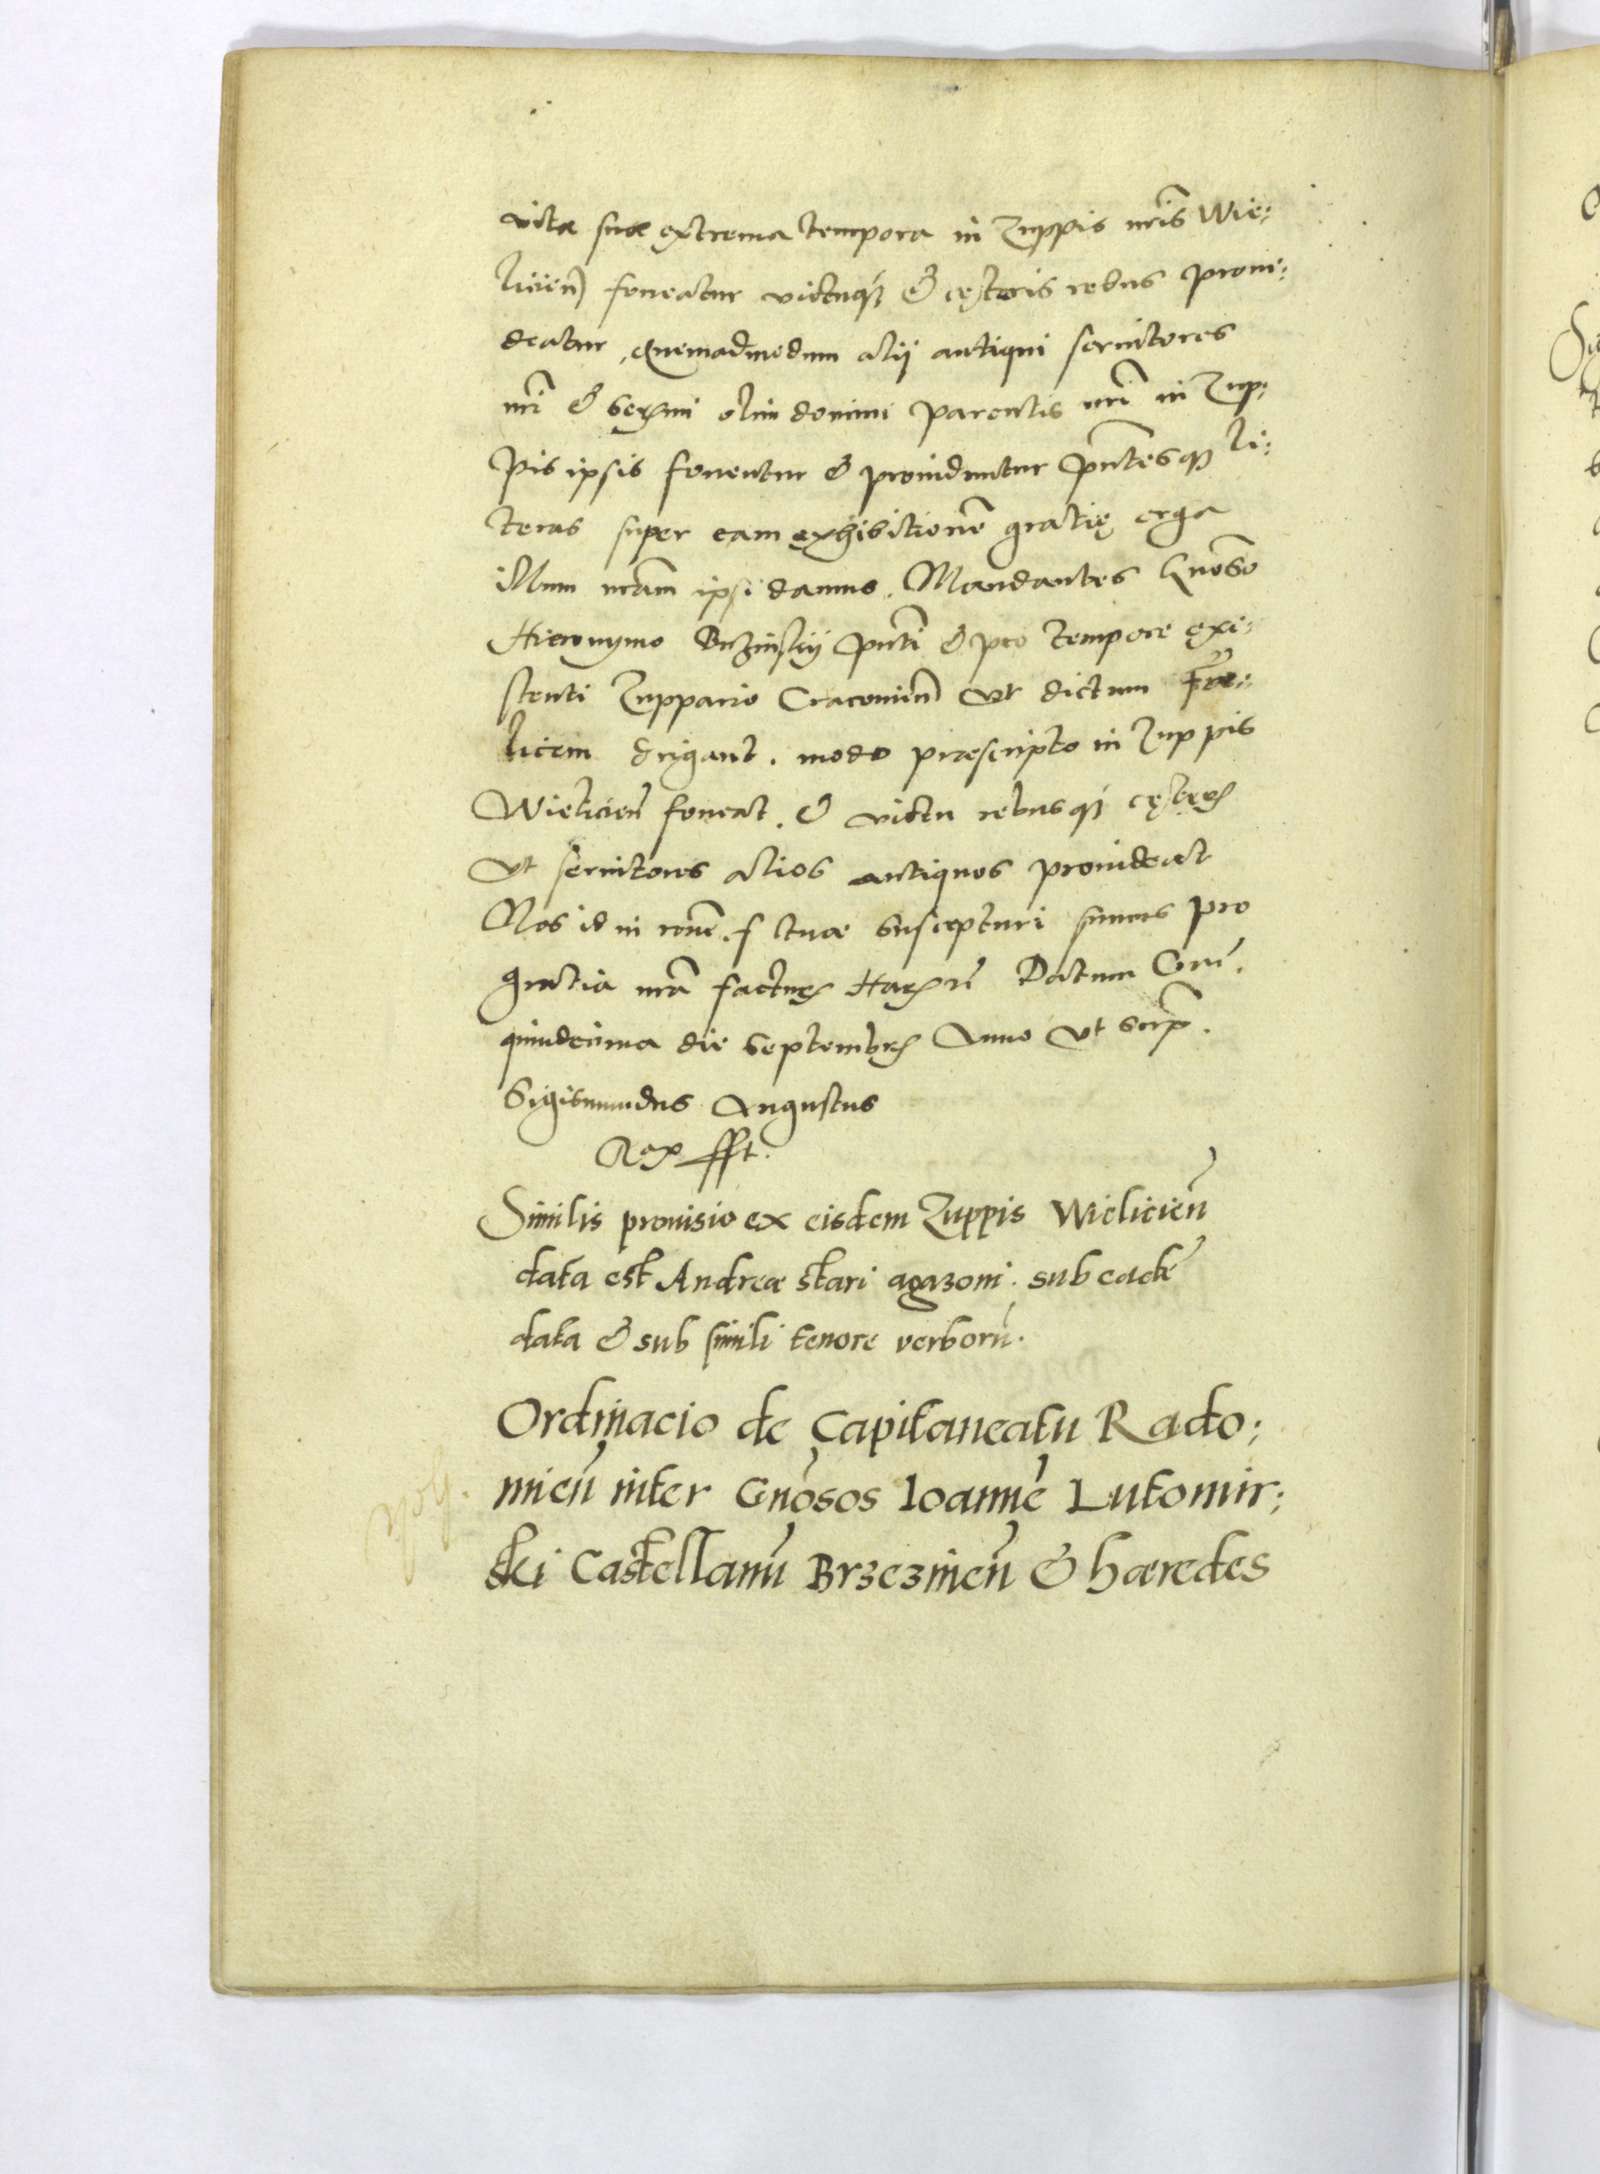 vitæ suæ extrema tempora in Zuppis nris̄ Wie:
licien̄ foueatur victuq́ & cęteris rebus proui:
deatur, quemadmodum alij antiqui seruitores
nri̅ & Serᵐⁱ olim domini parentis nri̅ in Zup:
pis ipsis fouentur & prouidentur p̄ntesq́ li:
teras super eam exhibitionē gratię erga
illum nram̄ ipsi damus. Mandantes Gnōso
Hieronymo Buzinskij p̄nti & pro tempore exi:
stenti Zuppario Cracouien̄ vt dictum Fœ:
licem modo præscripto in Zuppis
Wielicien̄ foueat. & victu rebusq́ cęteris
vt seruitores alios antiquos prouideat
Nos id in rōnē suscepturi sumus pro
gratia nra̅ Datum
quindecima die Septembris Anno vt supr̄.
Sigismundus Augustus
Rex sst.
Similis prouisio ex eisdem Zuppis Wielicien̄
data est Andreæ stari agazoni. sub eadē
data & sub simili tenore verborū.
Ordinacio de Capitaneatu Rado:
mien̄ inter Gnōsos Ioannē Lutomir:
ski Castellanū Brzezinen̄ & hæredes